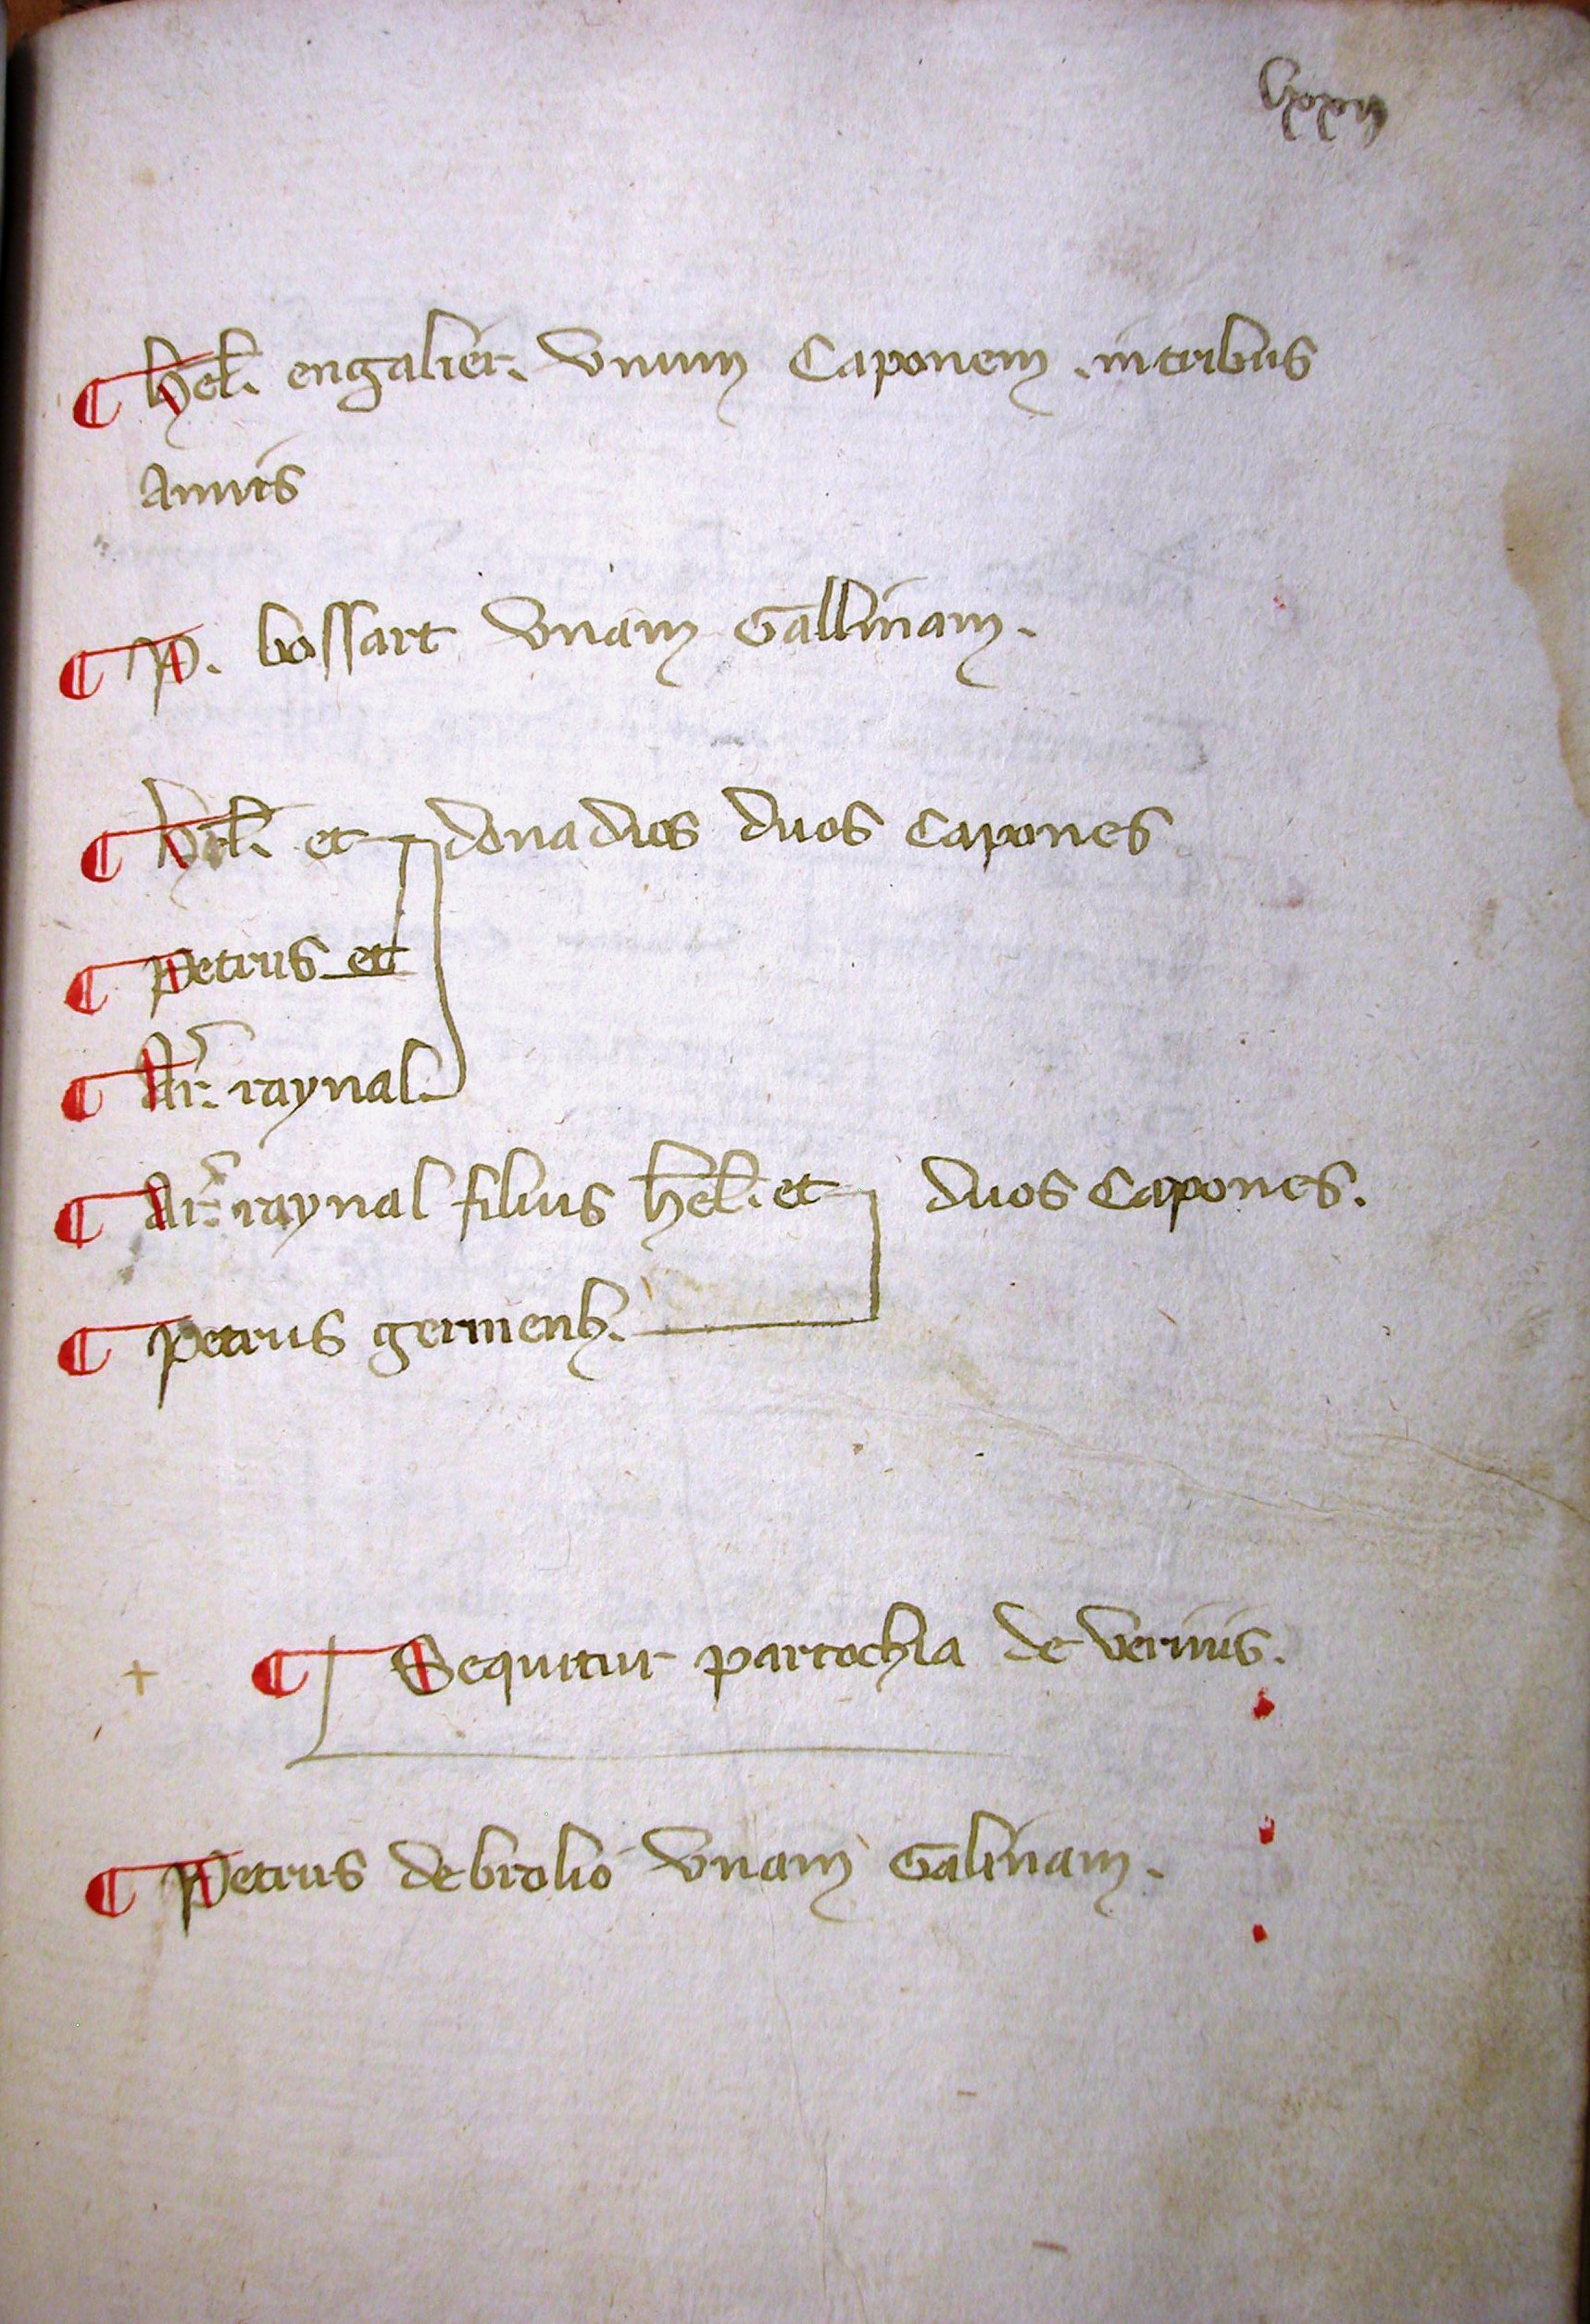 lxxxii
¶ hel. engalier. vnum Caponem .in tribus
Annis
¶ P. bossart vnam Gallinam.
¶ hel. et donadios duos Capones
¶ Petrus et
¶ Ar. raynal.
¶ Ar. raynal filius hel. et duos Capones.
¶ Petrus germenh.
¶ Sequitur parrochia de Vernis.
¶ Petrus de brolio vnam Galinam.